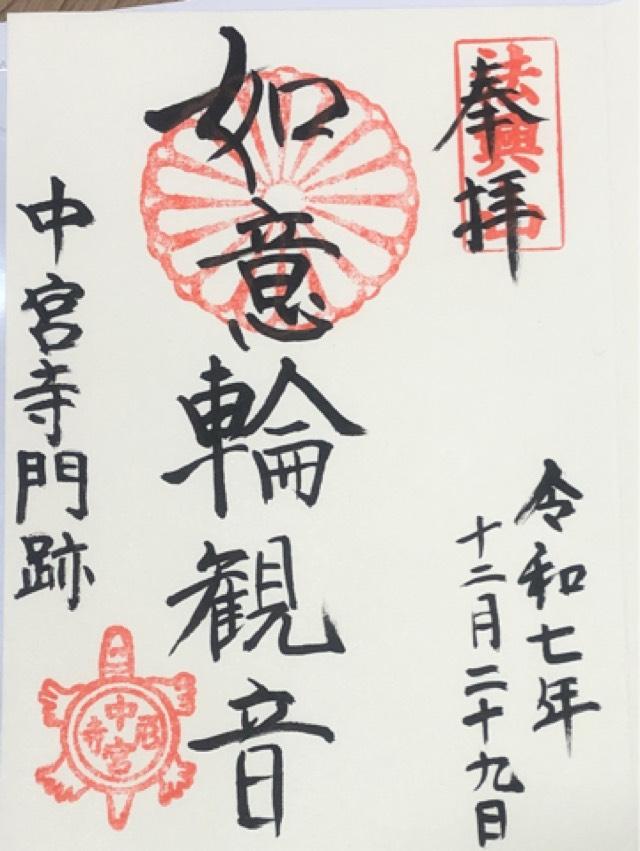 奉拝
法興山
令和七年
十二月二十九日
如意輪観音
中宮寺門跡
中宮寺